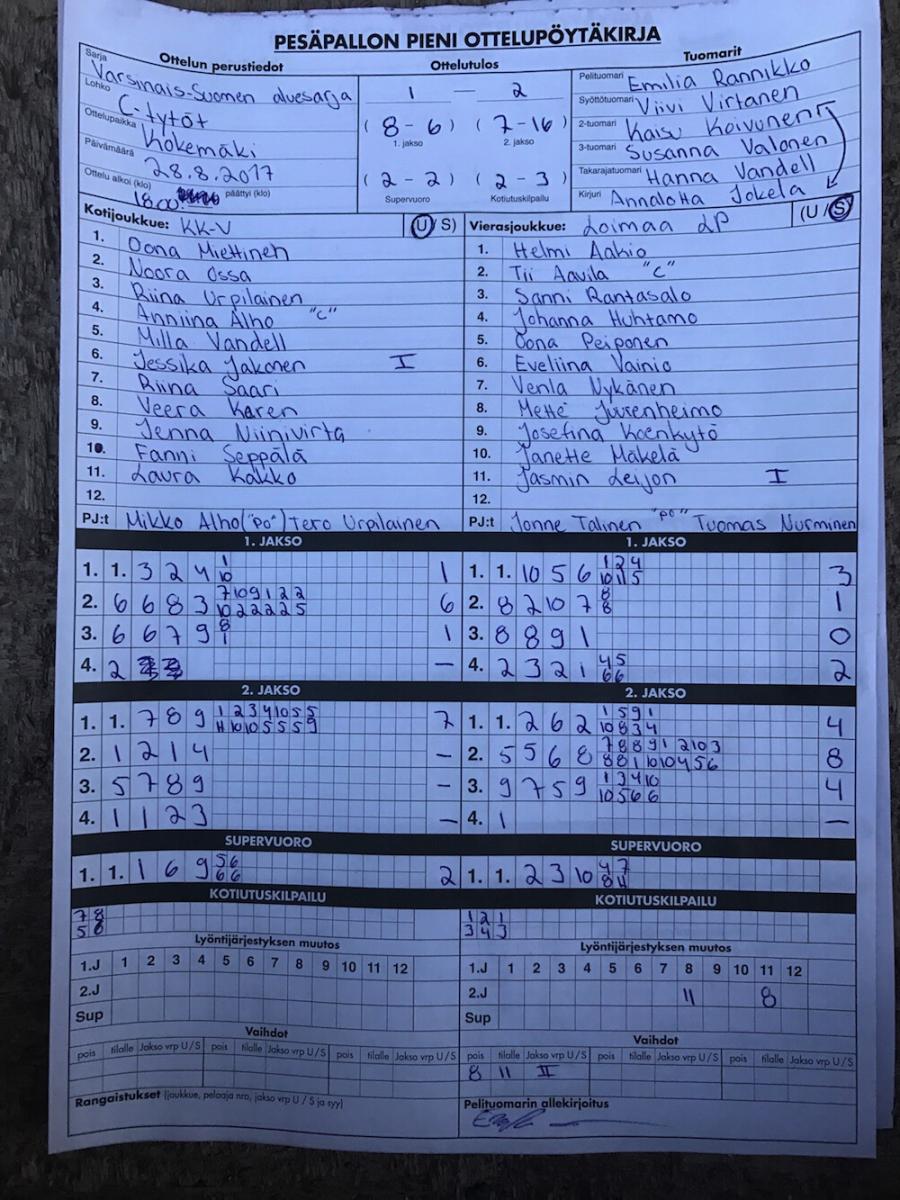 PESÄPALLON PIENI OTTELUPÖYTÄKIRJA
Ottelun perustiedot Ottelutulos Tuomarit
Sarja Varsinais-Suomen aluesarja
Lohko C-tytöt
Ottelupaikka Kokemäki
Päivämäärä 28.8.2017
Ottelu alkoi (klo) 18.00 päättyi (klo)
1 — 2
(8-6) (7-16)
1. jakso 2. jakso
(2-2) (2-3)
Supervuoro Kotiutuskilpailu
Pelituomari Emilia Rannikko
Syöttötuomari Viivi Virtanen
2-tuomari Kaisu Koivunen
3-tuomari Susanna Valonen
Takarajatuomari Hanna Vandell
Kirjuri Annalotta Jokela
Kotijoukkue: KK-V (U/S)
1. Oona Miettinen
2. Noora Ossa
3. Riina Urpilainen
4. Anniina Alho "C"
5. Milla Vandell
6. Jessika Jakonen I
7. Riina Saari
8. Veera Karen
9. Jenna Niinivirta
10. Fanni Seppälä
11. Laura Kakko
12.
PJ:t Mikko Alho ("po") Tero Urpilainen
Vierasjoukkue: Loimaa LP (U/S)
1. Helmi Aakio
2. Tii Aavila "C"
3. Sanni Rantasalo
4. Johanna Huhtamo
5. Oona Peiponen
6. Eveliina Vainio
7. Venla Nykänen
8. Mette Juusenheimo
9. Josefina Koenkytö
10. Janette Mäkelä
11. Jasmin Leijon I
12.
PJ:t Jonne Talinen "po" Tuomas Nurminen
1. JAKSO
1. 1. 3 2 4 1 1
10
2. 6 6 8 3 7 10 9 1 2 2 6
10 2 2 2 2 5
3. 6 6 7 9 8 1
1
4. 2 —
1. JAKSO
1. 1. 10 5 6 1 2 4 3
10 11 5
2. 8 2 10 7 8 1
8
3. 8 8 9 1 0
4. 2 3 2 1 4 5 2
6 6
2. JAKSO
1. 1. 7 8 9 1 2 3 4 10 5 5 7
11 10 10 5 5 5 9
2. 1 2 1 4 —
3. 5 7 8 9 —
4. 1 1 2 3 —
2. JAKSO
1. 1. 2 6 2 1 5 9 1 4
10 8 3 4
2. 5 5 6 8 7 8 8 9 1 2 10 3 8
8 8 1 10 10 4 5 6
3. 9 7 5 9 1 3 4 10 4
10 5 6 6
4. 1 —
SUPERVUORO
1. 1. 1 6 9 5 6 2
6 6
SUPERVUORO
1. 1. 2 3 10 4 7
8 11
KOTIUTUSKILPAILU
7 8
5 8
KOTIUTUSKILPAILU
1 2 1
3 4 3
Lyöntijärjestyksen muutos
1.J 1 2 3 4 5 6 7 8 9 10 11 12
2.J
Sup
Lyöntijärjestyksen muutos
1.J 1 2 3 4 5 6 7 8 9 10 11 12
2.J 11 8
Sup
Vaihdot
pois tilalle Jakso vrp U/S pois tilalle Jakso vrp U/S pois tilalle Jakso vrp U/S
Vaihdot
pois tilalle Jakso vrp U/S pois tilalle Jakso vrp U/S pois tilalle Jakso vrp U/S
8 11 II
Rangaistukset (joukkue, pelaaja nro, jakso vrp U / S ja syy)
Pelituomarin allekirjoitus